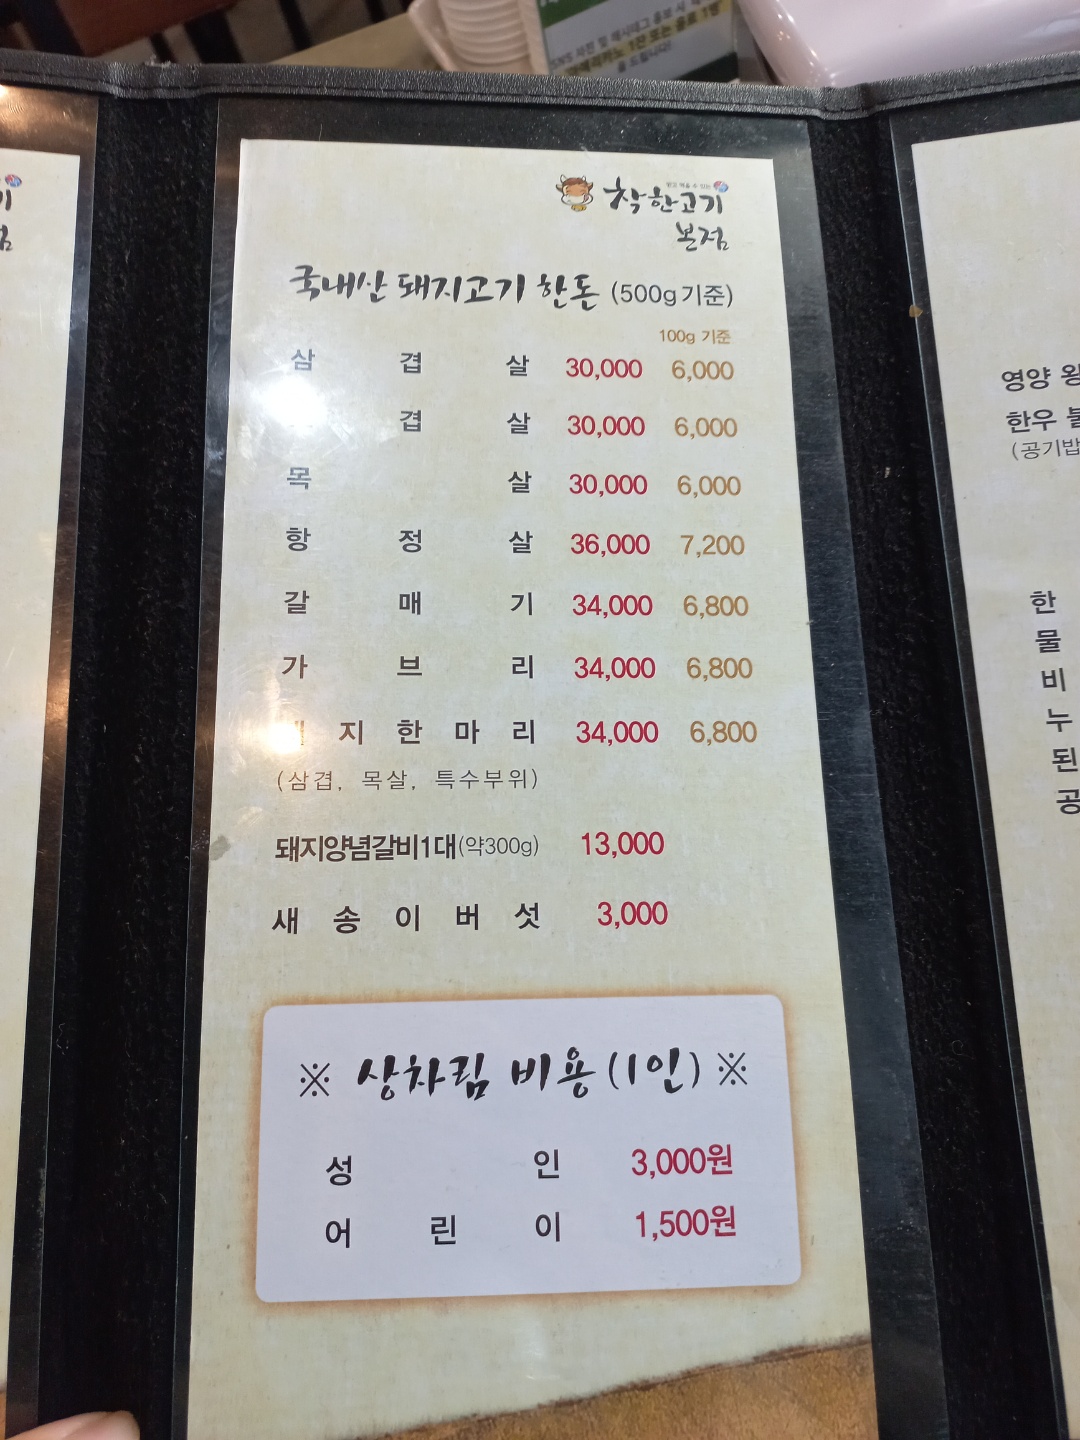 SNS
착한고기
본점
국내산 돼지고기 한돈 (500g기준)
100g 기준
삼 겹 살 30,000 6,000
겹 살 30,000 6,000
목 살 30,000 6,000
항 정 살 36,000 7,200
갈 매 기 34,000 6,800
가 브 리 34,000 6,800
지 한 마 리 34,000 6,800
(삼겹, 목살, 특수부위)
돼지양념갈비1대(약300g) 13,000
새 송 이 버 섯 3,000
※ 상차림 비용(1인) ※
성 인 3,000원
어 린 이 1,500원
영양
한우
(공기밥
한
물
비
누
된
공